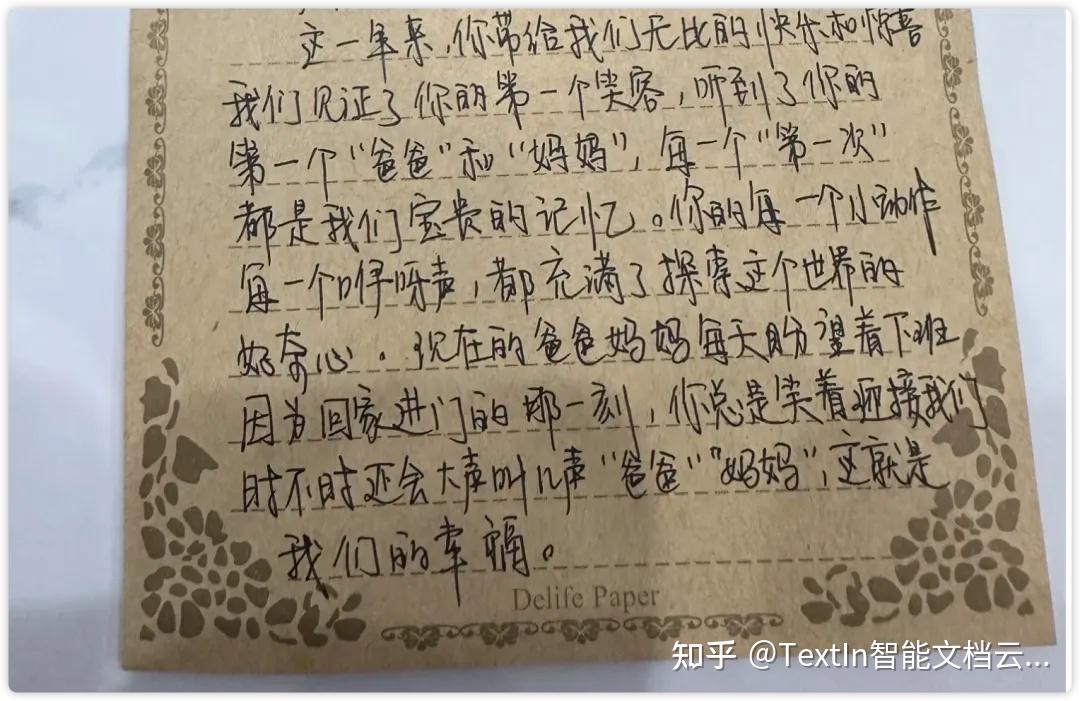 这一年来,你带给我们无比的快乐和惊喜
我们见证了你的第一个笑容,听到了你的
第一个“爸爸”和“妈妈”,每一个“第一次”
都是我们宝贵的记忆。你的每一个小动作
每一个咿呀声,都充满了探索这个世界的
好奇心。现在的爸爸妈妈每天盼望着下班
因为回家进门的那一刻,你总是笑着迎接我们
时不时还会大声叫几声“爸爸”“妈妈”,这就是
我们的幸福。
Delife Paper
知乎 @TextIn智能文档云...